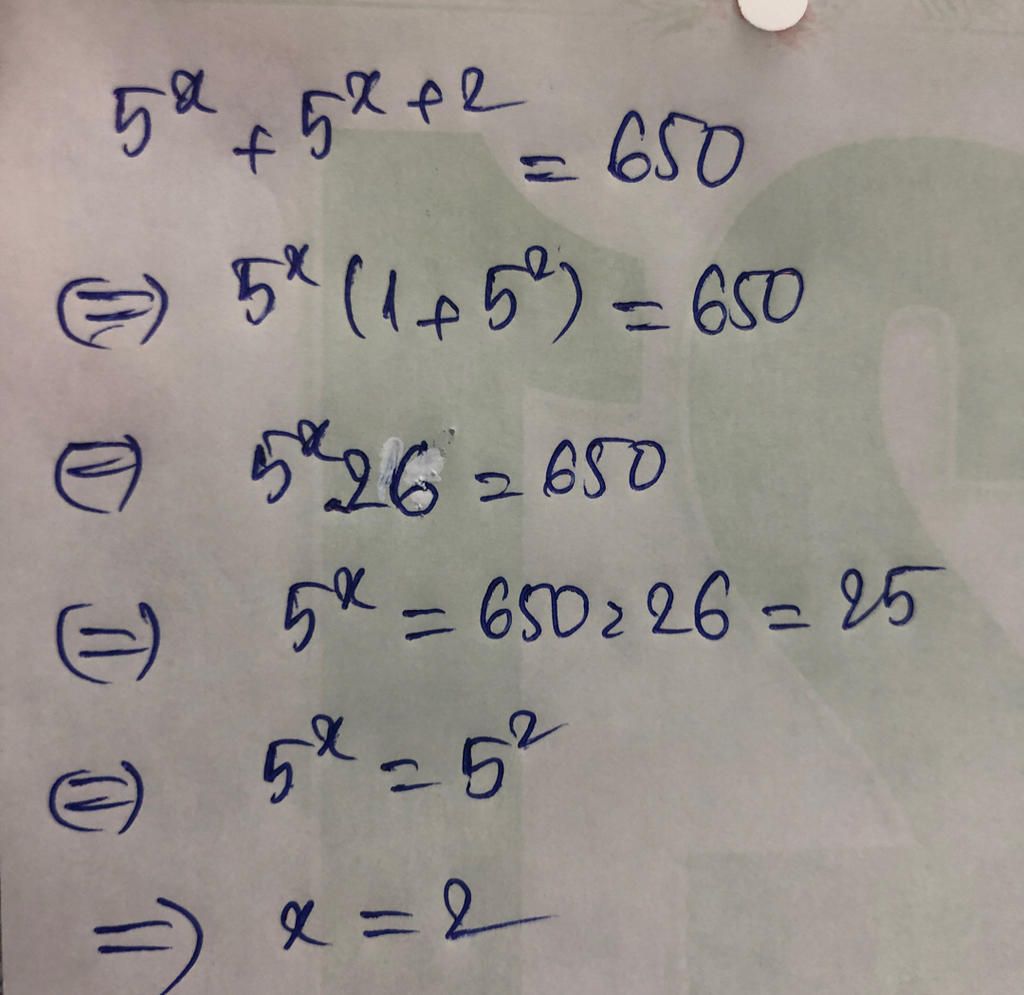 5ˣ + 5ˣ⁺² = 650
(=) 5ˣ (1 + 5²) = 650
(=) 5ˣ 26 = 650
(=) 5ˣ = 650 : 26 = 25
(=) 5ˣ = 5²
=) x = 2